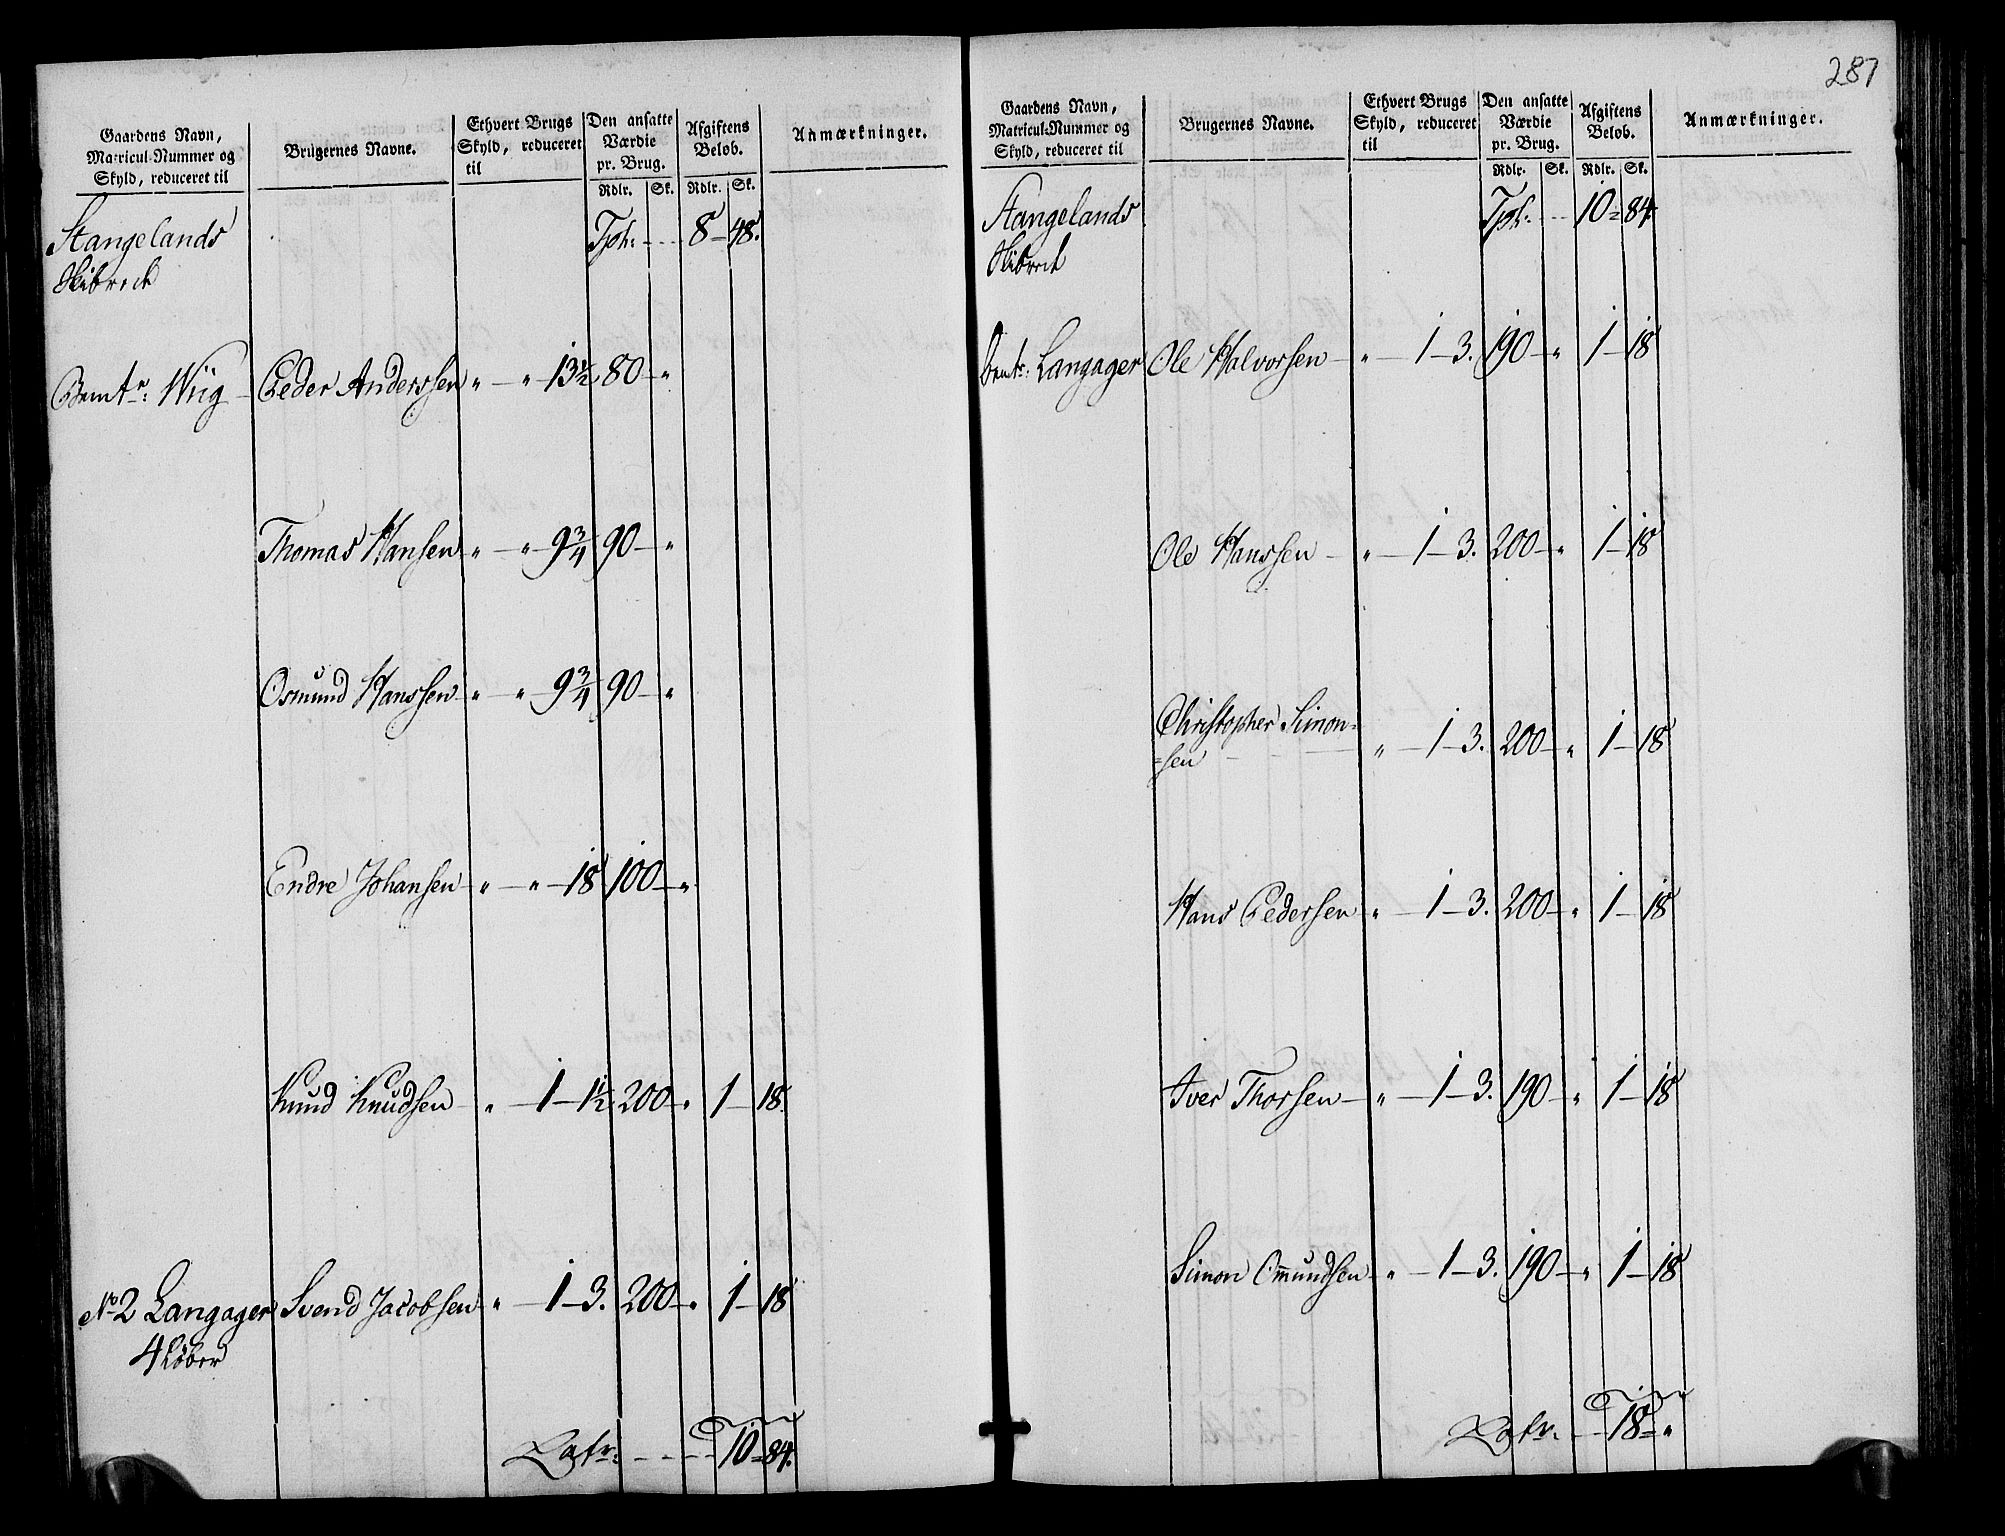 Gaardens Navn,
Matricul-Nummer og
Skyld, reduceret til
Brugernes Navne.
Ethvert Brugs
Skyld, reduceret
til
Den ansatte
Værdie
pr. Brug.
Rdlr. Sk.
Afgiftens
Beløb.
Rdlr. Sk.
Anmærkninger.
Stangelands Tpt: - - - 8 - 48.
Skibrede
Bemte: Wiig - Peder Anderssen " - " - 13 1/2 80 - "
Thomas Hansen " - " - 9 3/4 90 - "
Osmund Hanssen " " - 9 3/4 90 - "
Endre Johansen - " - " - 18 100 - "
Knud Knudsen - " - 1 - 1 1/2 200 - " 1 - 18.
No 2 Langager Svend Jacobsen " - 1 - 3. 200 - " 1 - 18
4 Løber
Latr: - - - - 10 = 84.
287
Gaardens Navn,
Matricul-Nummer og
Skyld, reduceret til
Brugernes Navne.
Ethvert Brugs
Skyld, reduceret
til
Den ansatte
Værdie
pr. Brug.
Rdlr. Sk.
Afgiftens
Beløb.
Rdlr. Sk.
Anmærkninger.
Stangelands Tpt: - - - 10 = 84
Skibrede
Bemte: Langager Ole Halvorsen - " - 1 - 3. 190 - " 1 - 18
Ole Hanssen - " - 1 - 3. 200 - " 1 - 18
Christopher Simon=
=sen - - - " - 1 - 3. 200 - " 1 - 18
Hans Pedersen " - 1 - 3. 200 - " 1 - 18
Iver Thorsen - " - 1 - 3. 190 - " 1 - 18
Simon Omundsen - " - 1 - 3. 190 - " 1 - 18
Latr: - - 18 = "